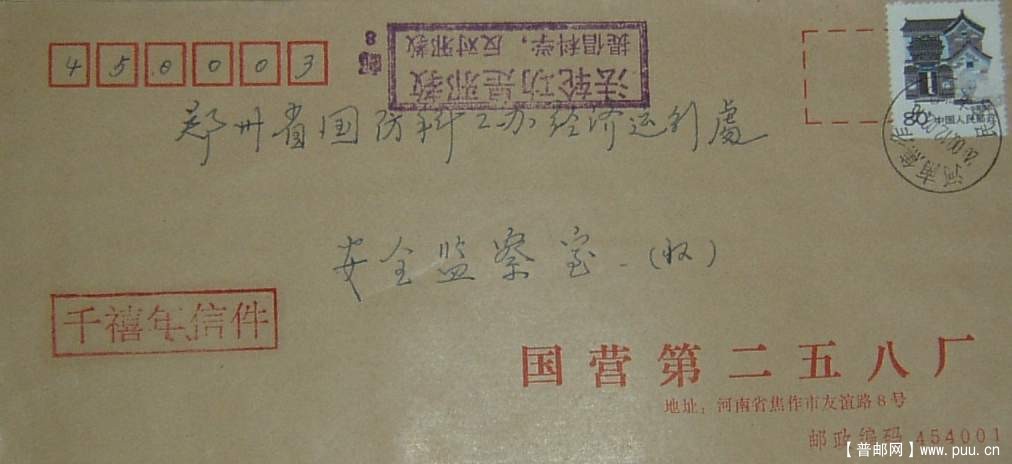 450003
法轮功是邪教
提倡科学，反对邪教
郑州省国防科工办经济运行處
安全监察室（收）
千禧年信件
国营第二五八厂
地址：河南省焦作市友谊路8号
邮政编码 454001
80分
中国人民邮政
河南焦作
【普邮网】www.puu.cn